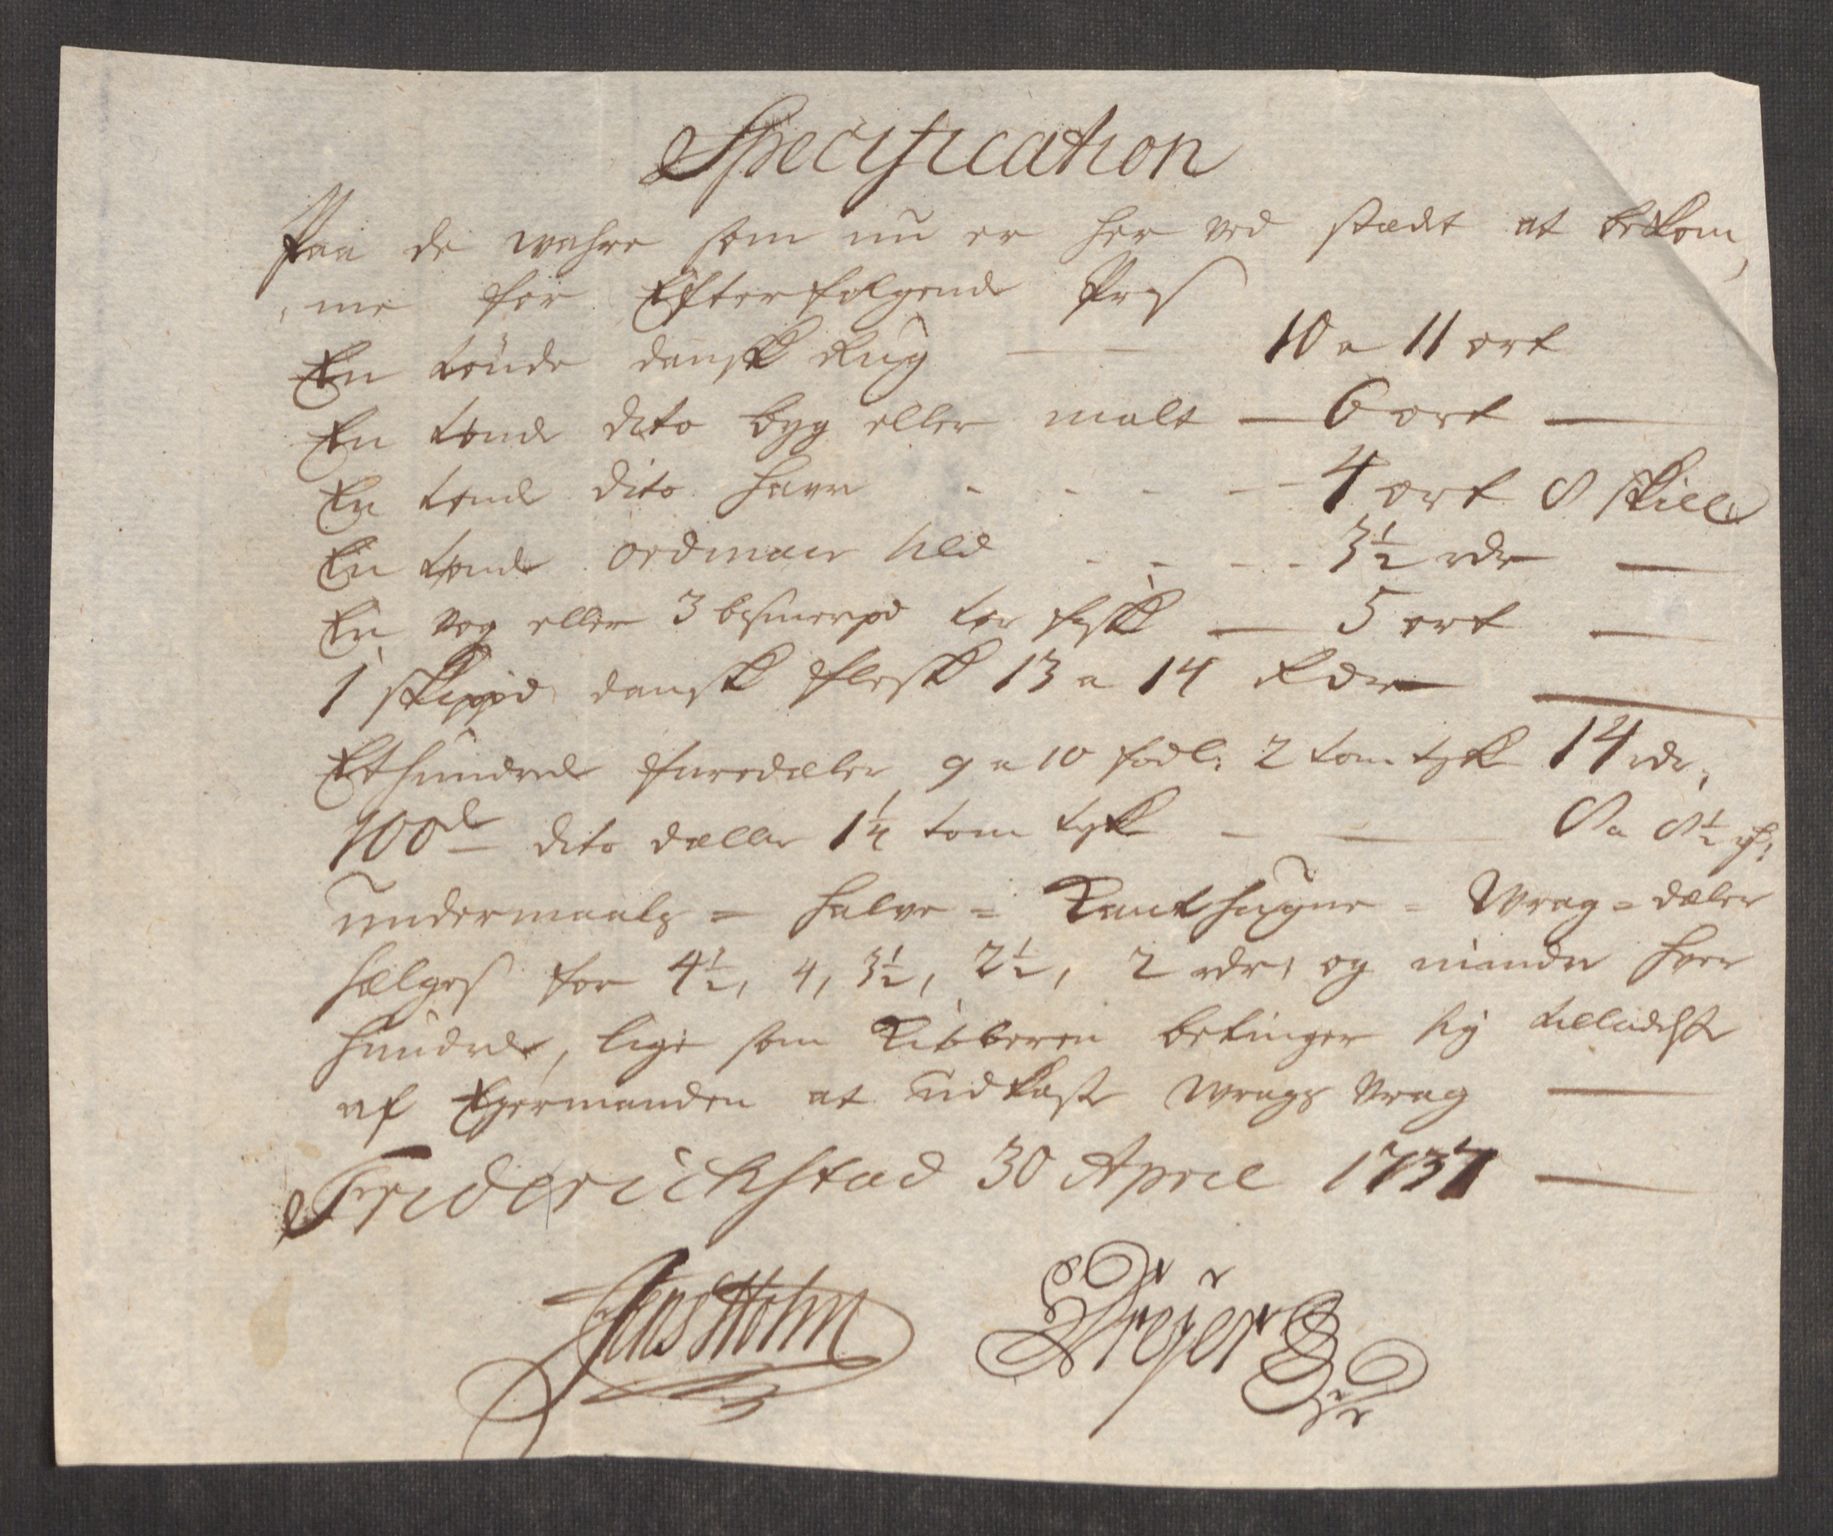 Specification
Paa de wahre som nu er her ved stædet at bekom,
,me for Efterfølgende Prys
En tønde dansk Rug 10 a 11 ort
En tønde dito byg eller malt 6 ort
En tønde dito havre 4 ort 8 skill
En tønde ordinair sild 3½ rdr
En vog eller 3 bismerpd tør fisk 5 ort
1 skippd dansk flesk 13 a 14 Rdr
Et hundrede furedæler 9 a 10 fod l: 2 tom tyk 14 rdr,
100de dito dæller 1¼ tom tyk 8 a 8½ rd:
undermaals = halve = = Wrag = dæler
sælges for 4½, 4, 3½, 2½, 2 rdr, og mindre hver
hundrede, lige som Kiøberen betinger sig tilladelse
af Eyermanden at udkaste Wrags Vrag
Friderichstad 30 April 1737
Jens Holm Dreyer